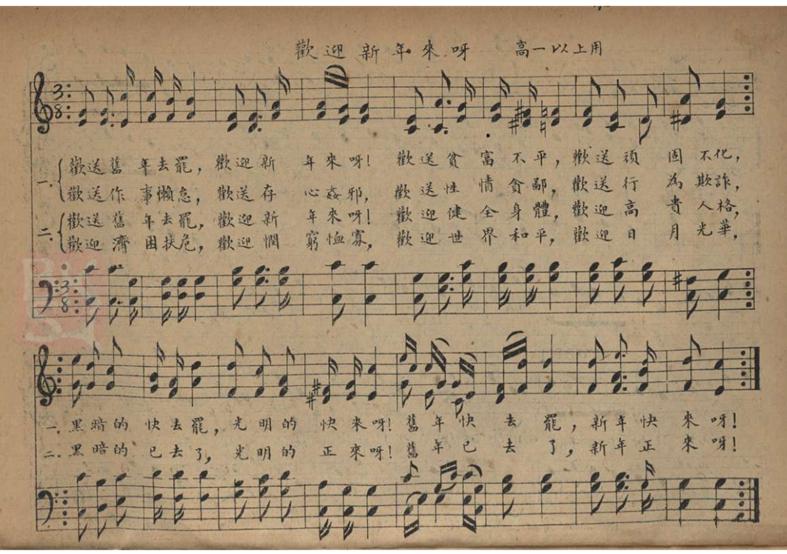 歡迎新年來呀 高一以上用
3
8
一.
歡送舊年去罷，歡迎新年來呀！歡送貧富不平，歡送頑固不化，
歡送作事懶怠，歡送存心姦邪，歡送性情貪鄙，歡送行為欺詐，
二.
歡送舊年去罷，歡迎新年來呀！歡迎健全身體，歡迎高貴人格，
歡迎濟困扶危，歡迎憫窮恤寡，歡迎世界和平，歡迎日月光華，
3
8
一.黑暗的快去罷，光明的快來呀！舊年快去罷，新年快來呀！
二.黑暗的已去了，光明的正來呀！舊年已去了，新年正來呀！